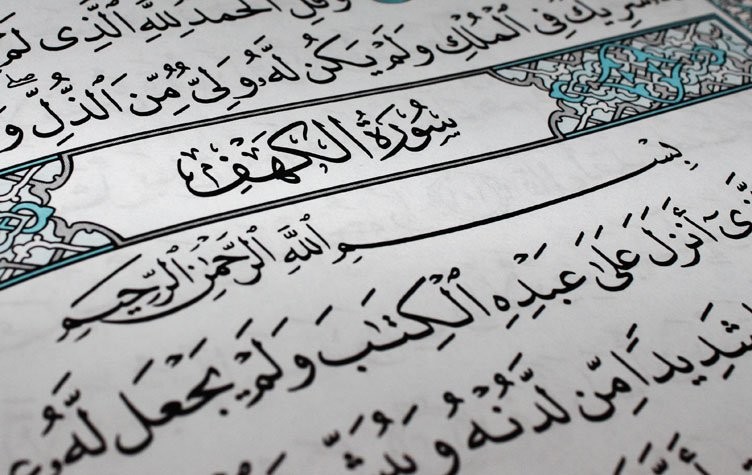 وَقُلِ ٱلۡحَمۡدُ لِلَّهِ ٱلَّذِى لَمۡ
شَرِيكٌ فِى ٱلۡمُلۡكِ وَلَمۡ يَكُن لَّهُۥ وَلِىٌّ مِّنَ ٱلذُّلِّ ۖ وَ
سُورَةُ الكَهۡفِ
بِسۡمِ ٱللَّهِ ٱلرَّحۡمَٰنِ ٱلرَّحِيمِ
أَنزَلَ عَلَىٰ عَبۡدِهِ ٱلۡكِتَٰبَ وَلَمۡ يَجۡعَل لَّهُۥ
شَدِيدًا مِّن لَّدُنۡهُ وَيُبَشِّرَ